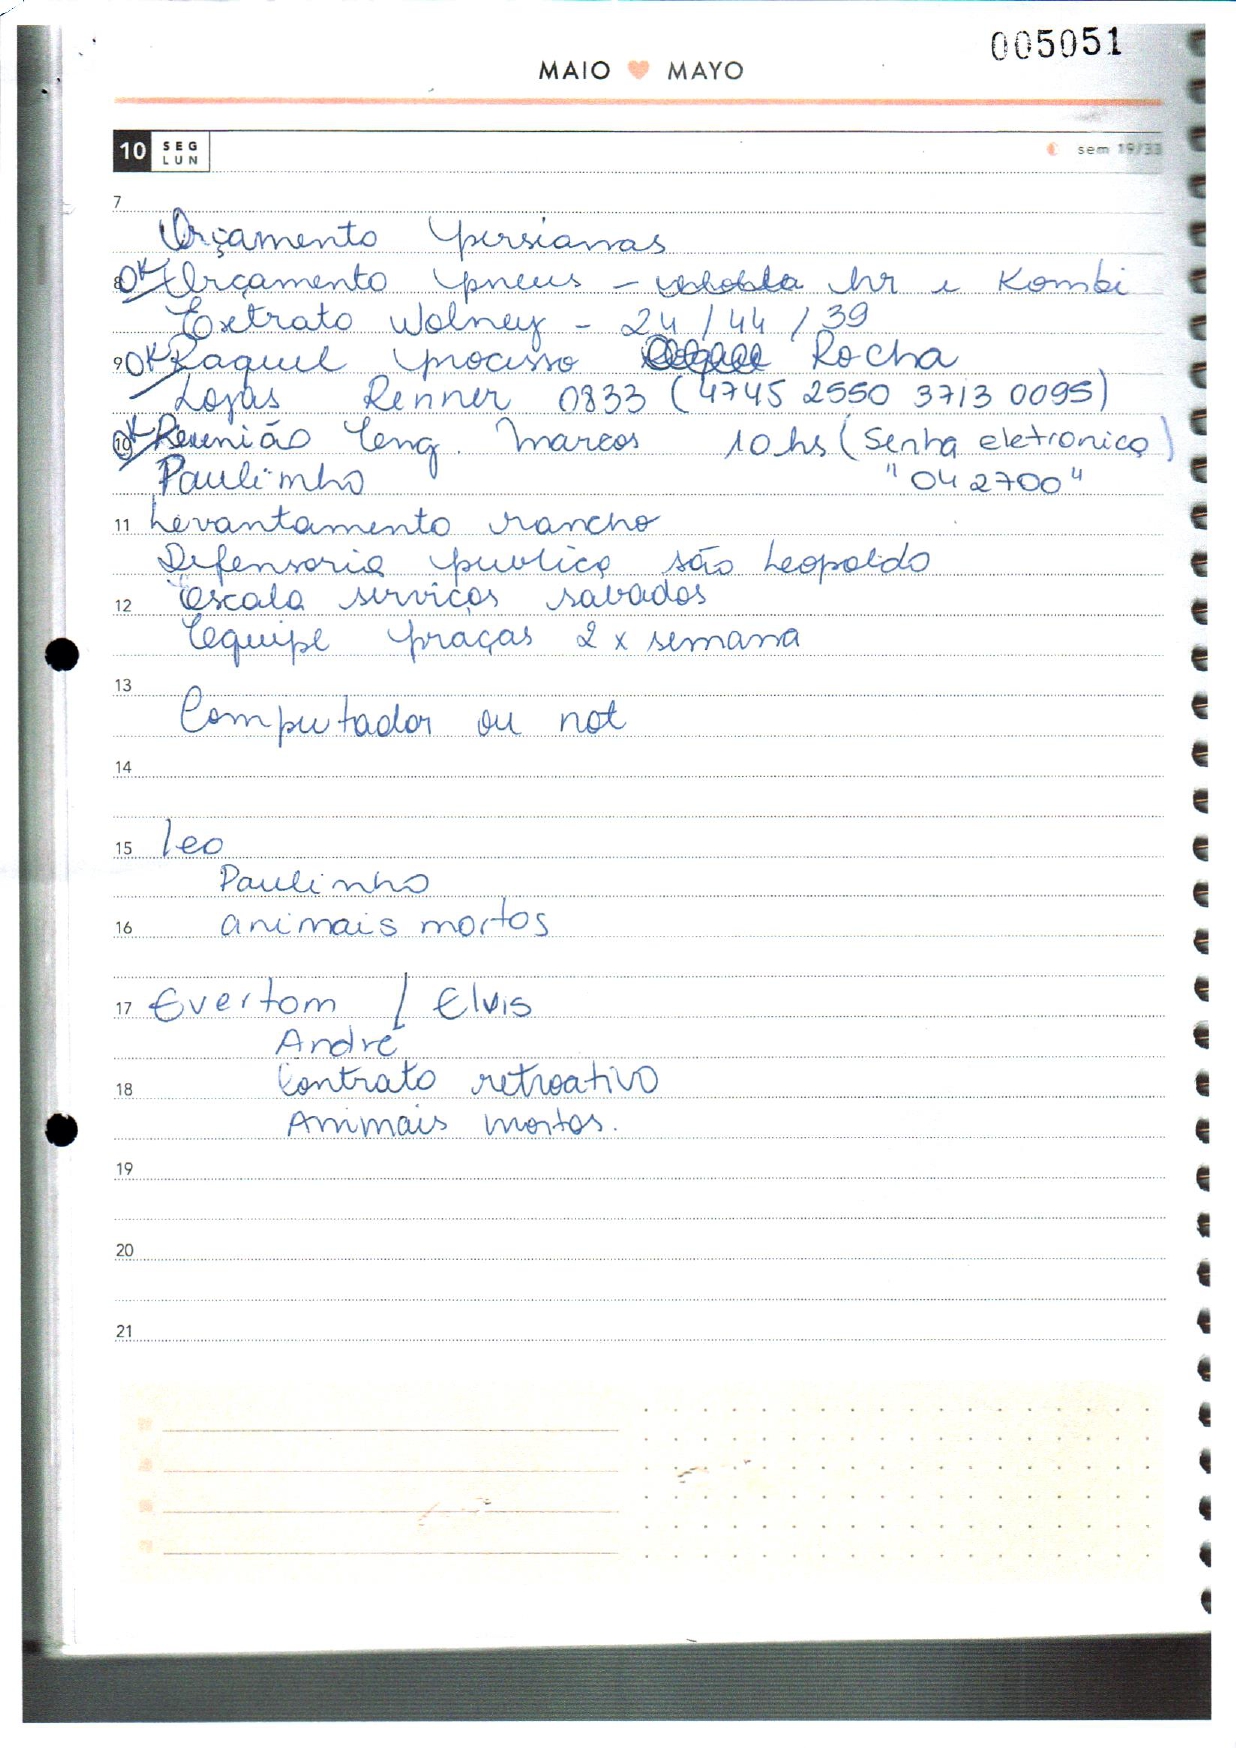 005051
MAIO MAYO
10 SEG LUN sem 19/33
7
Orçamento persianas
8 OK Orçamento pneus - hr e Kombi
Extrato Wolney - 24 / 44 / 39
9 OK Raquel processo Rocha
Lojas Renner 0833 (4745 2550 3713 0095)
10 OK Reunião Eng. Marcos 10 hs (Senha eletronica)
Paulinho "042700"
11 Levantamento rancho
Defensoria publica são Leopoldo
12 Escala serviços sabados
Equipe praças 2 x semana
13
Computador ou not
14
15 Leo
Paulinho
16 animais mortos
17 Evertom / Elvis
André
18 Contrato retroativo
Animais mortos.
19
20
21